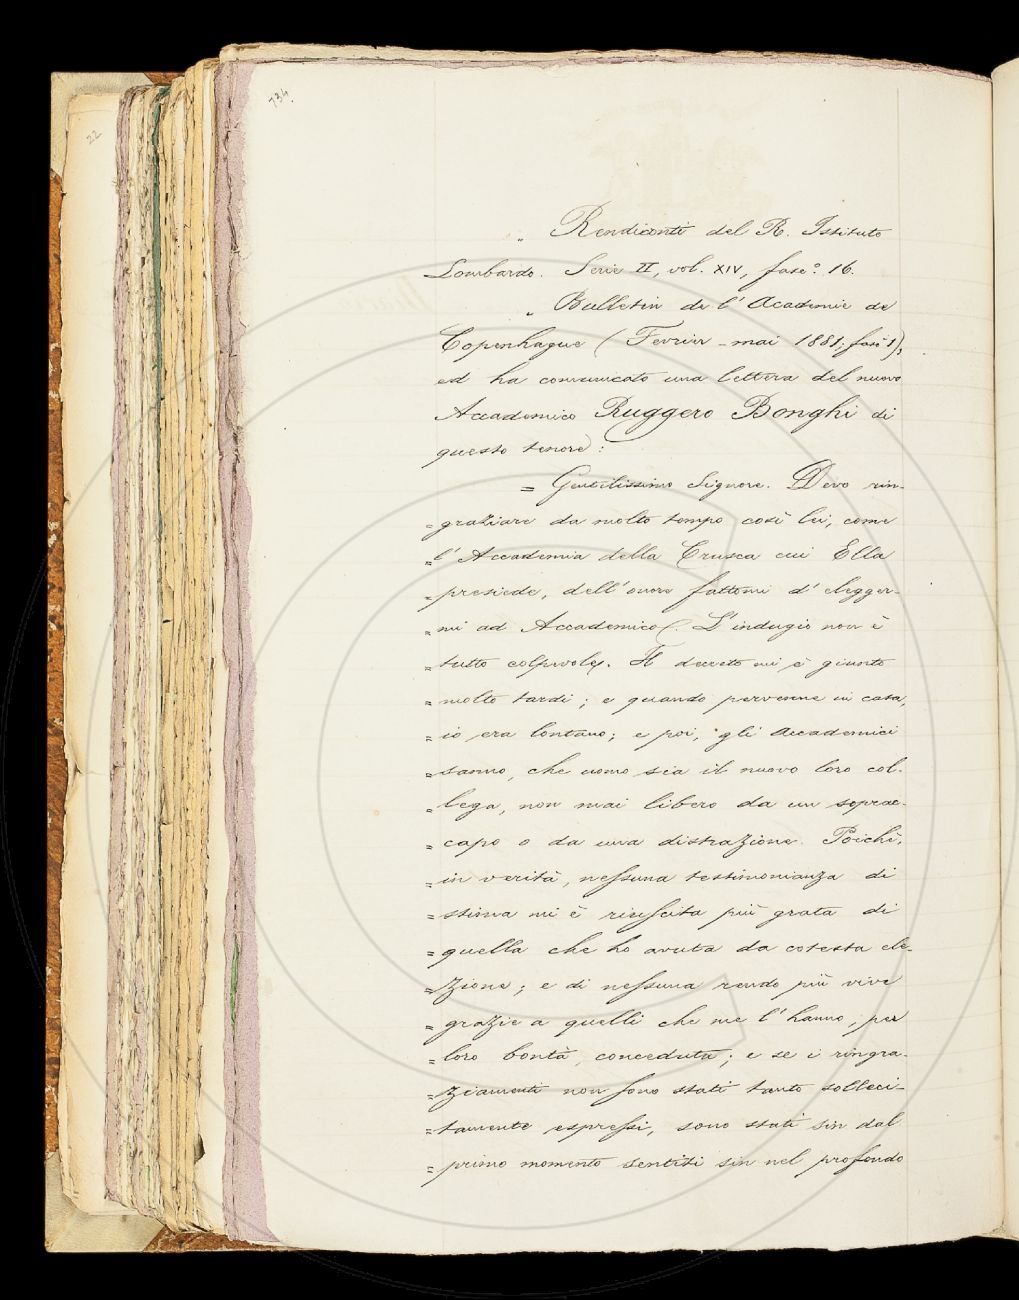 734.
22
„ Rendiconti del R. Istituto
Lombardo. Serie II, vol. XIV, fasc.° 16.
„ Bulletin de l'Academie de
Copenhague (Fevrier - mai 1881; fasc 1),
ed ha comunicato una lettera del nuovo
Accademico Ruggero Bonghi di
questo tenore:
= Gentilissimo Signore. Devo rin-
= graziare da molto tempo così lei, come
= l'Accademia della Crusca cui Ella
= presiede, dell'onore fattomi d'elegger-
= mi ad Accademico. L'indugio non è
= tutto colpevole. Il decreto mi è giunto
= molto tardi; e quando pervenne in casa,
= io era lontano; e poi, gli Accademici
= sanno, che uomo sia il nuovo loro col-
= lega, non mai libero da un soprac-
= capo o da una distrazione. Poichè,
= in verità, nessuna testimonianza di
= stima mi è riuscita più grata di
= quella che ho avuta da cotesta ele-
= zione; e di nessuna rendo più vive
= grazie a quelli che me l'hanno, per
= loro bontà, conceduta; e se i ringra-
= ziamenti non sono stati tanto solleci-
= tamente espressi, sono stati sin dal
= primo momento sentiti sin nel profondo